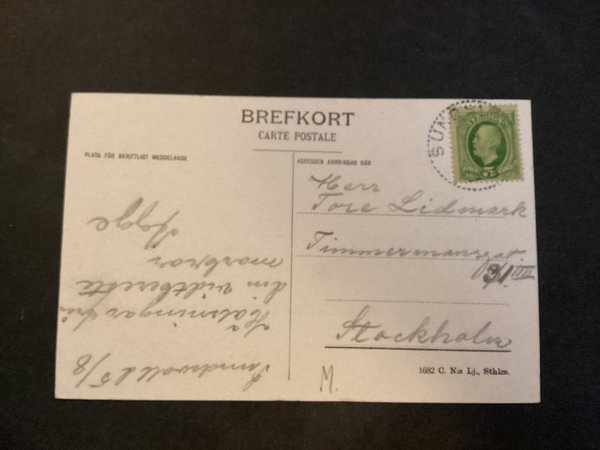 BREFKORT
CARTE POSTALE
PLATS FÖR SKRIFTLIGT MEDDELANDE
ADRESSEN ANBRINGAS HÄR
SUN
SVERIGE
5
Herr
Tore Lidmark
Timmermansgat.
31 III
Stockholm
Sundsvall d. 5/8
Hälsningar från
din vidtberesta
morbror
Hygge
M.
1682 C. N:s Lj., Sthlm.